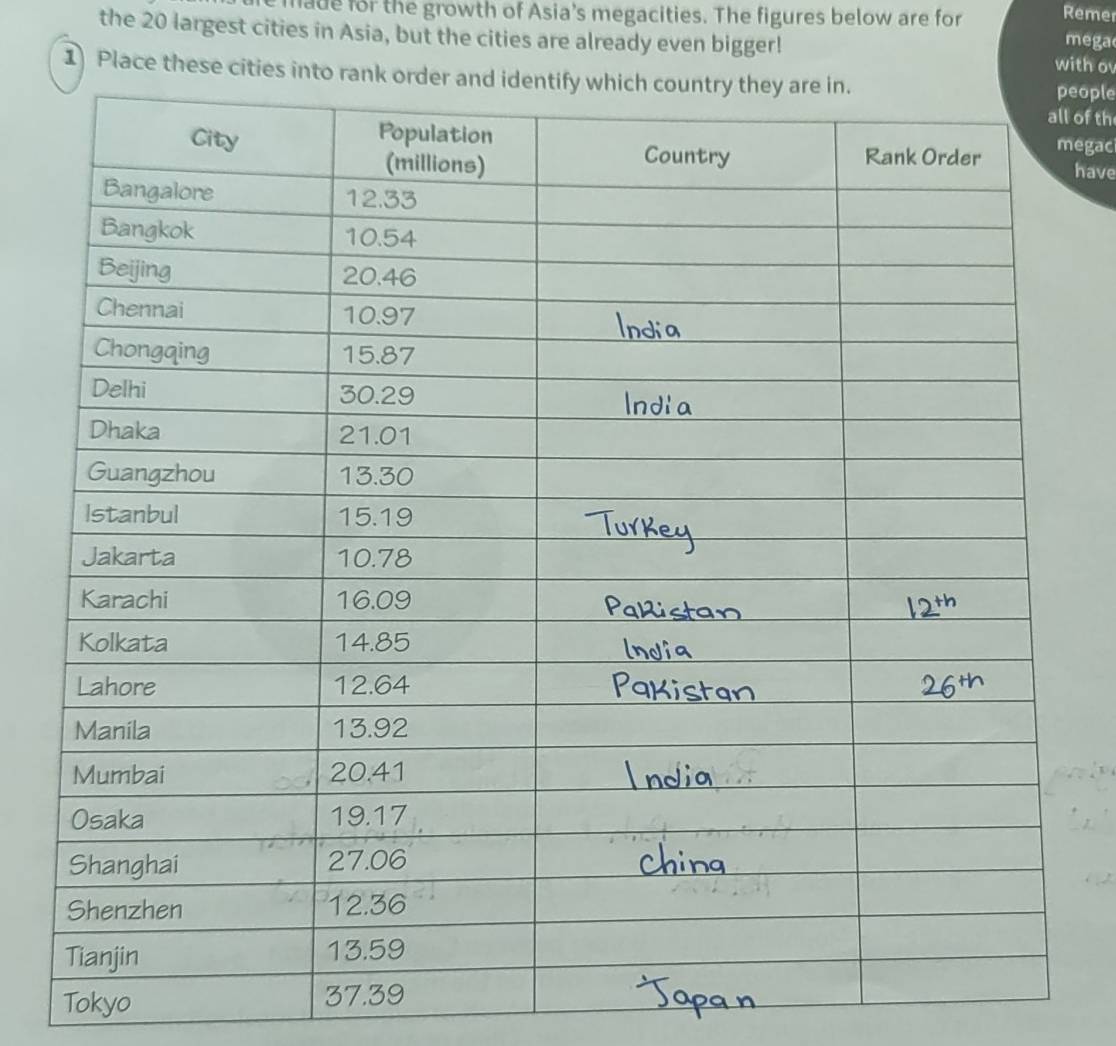 made for the growth of Asia's megacities. The figures below are for
the 20 largest cities in Asia, but the cities are already even bigger!
1) Place these cities into rank order and identify which country they are in.
City Population (millions) Country Rank Order
Bangalore 12.33
Bangkok 10.54
Beijing 20.46
Chennai 10.97 India
Chongqing 15.87
Delhi 30.29 India
Dhaka 21.01
Guangzhou 13.30
Istanbul 15.19 Turkey
Jakarta 10.78
Karachi 16.09 Pakistan 12th
Kolkata 14.85 India
Lahore 12.64 Pakistan 26th
Manila 13.92
Mumbai 20.41 India
Osaka 19.17
Shanghai 27.06 China
Shenzhen 12.36
Tianjin 13.59
Tokyo 37.39 Japan
with
people
all of
have